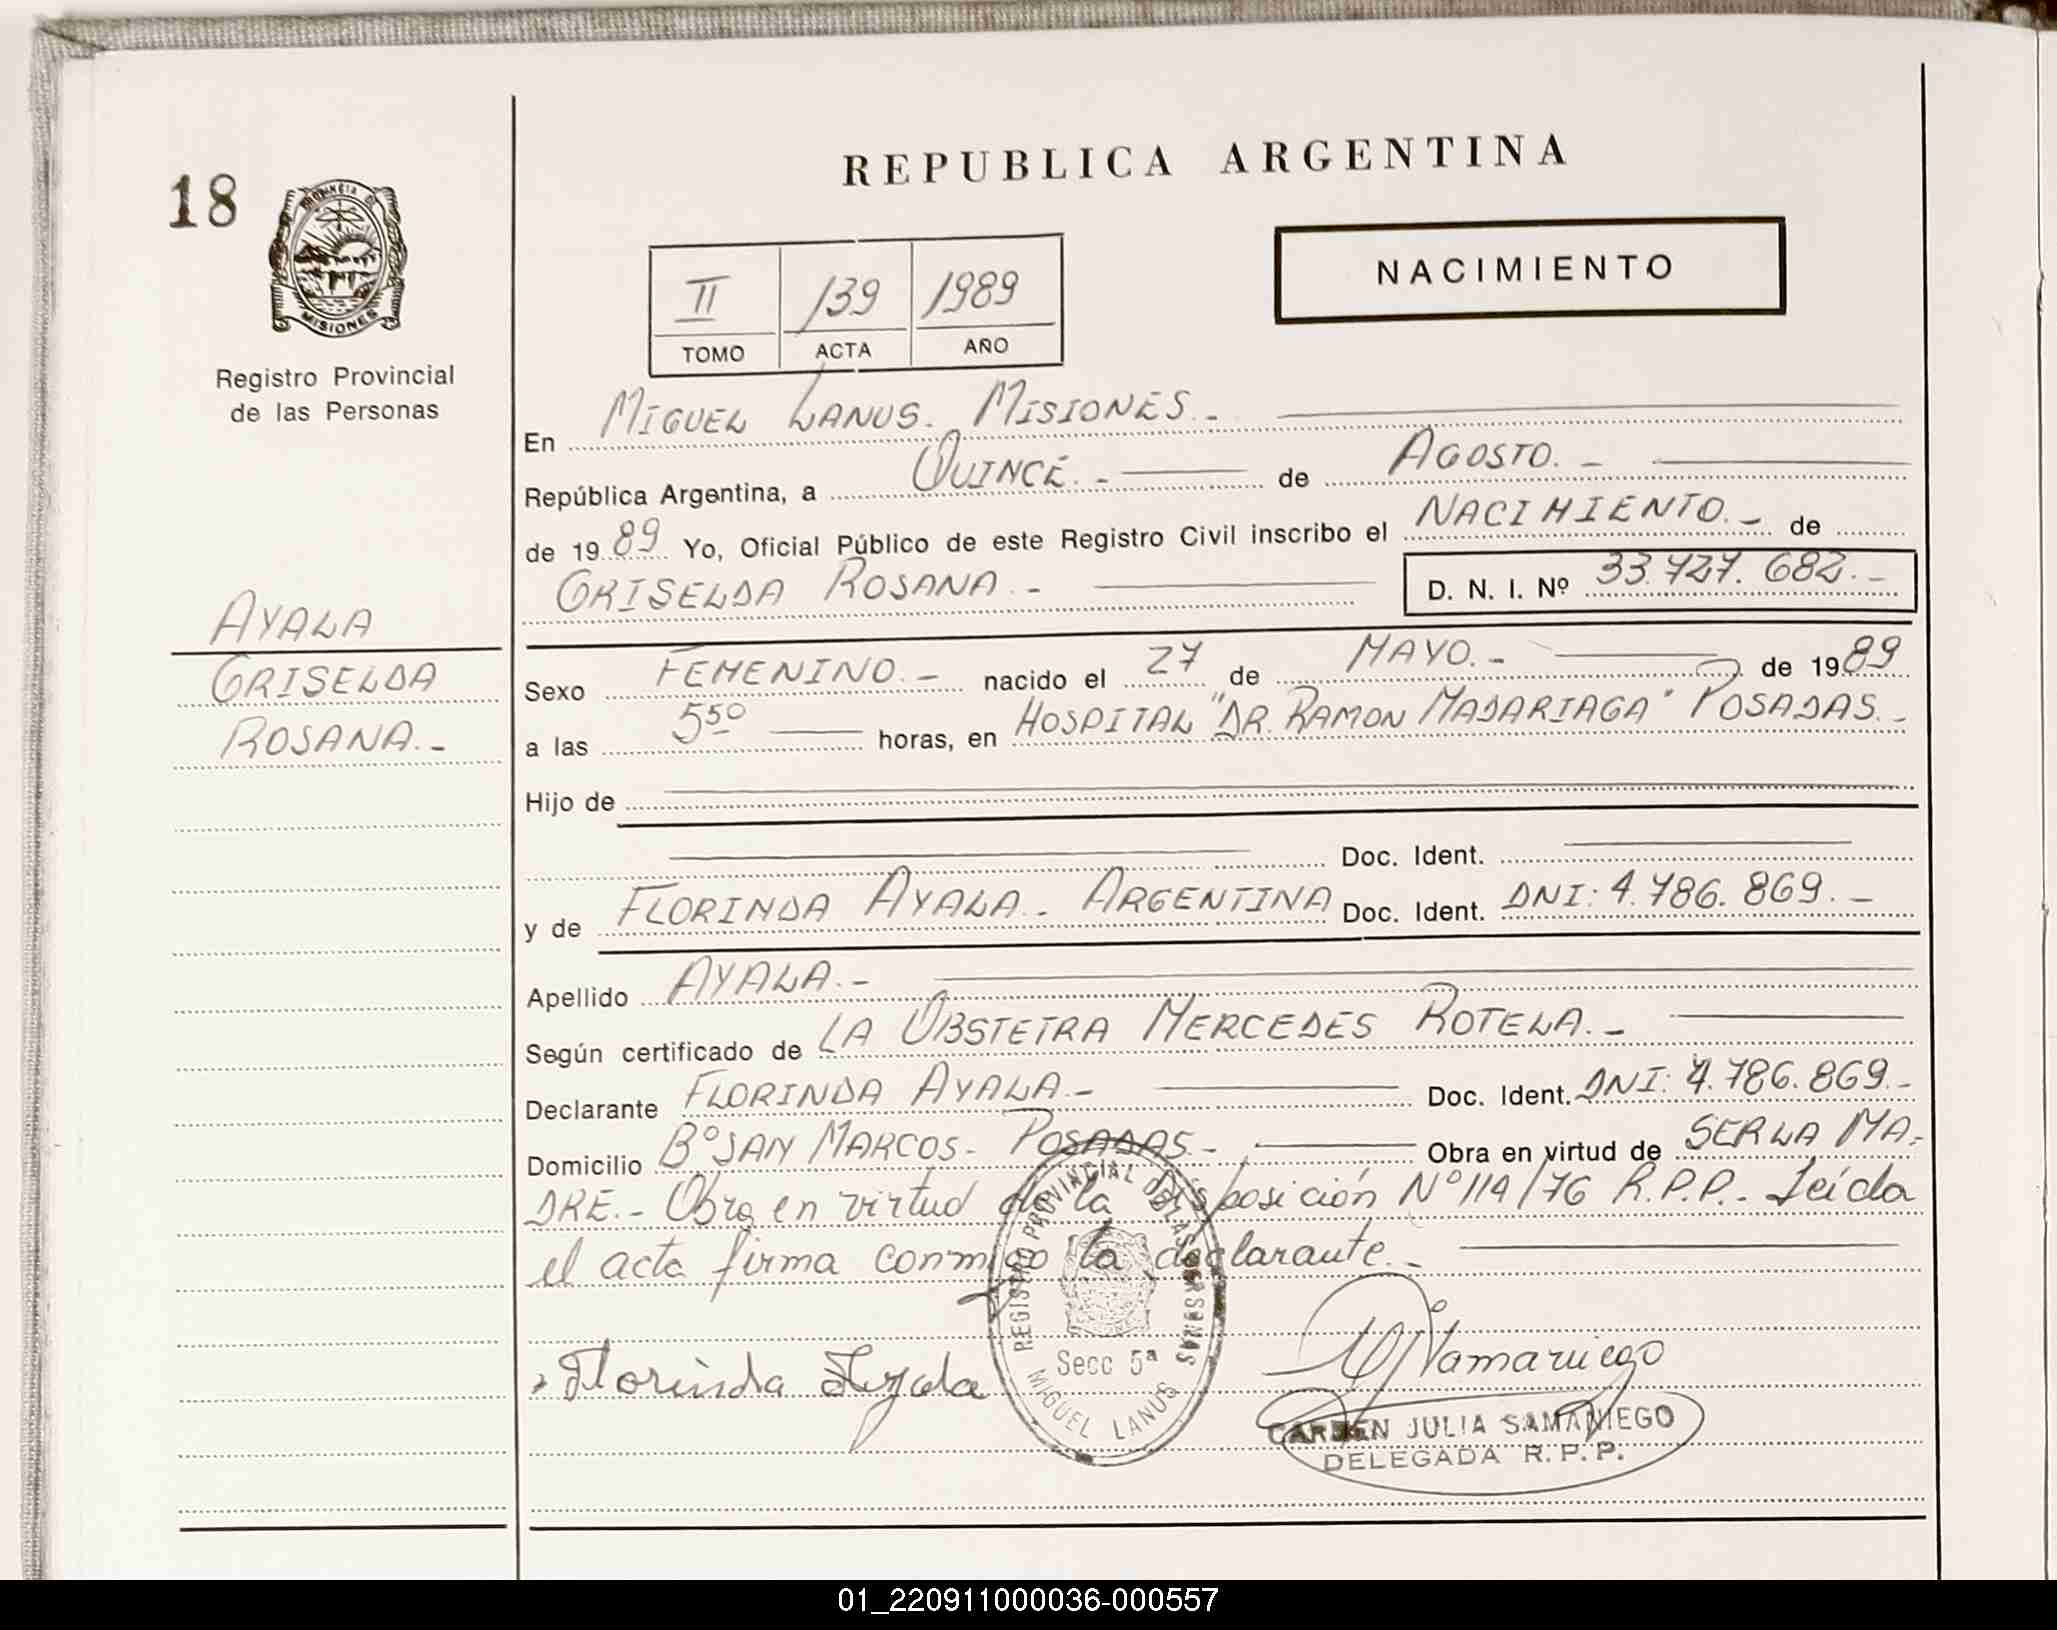 REPUBLICA ARGENTINA
18
PROVINCIA DE
MISIONES
Registro Provincial
de las Personas
NACIMIENTO
II 139 1989
TOMO ACTA AÑO
En MIGUEL LANUS. MISIONES.-
República Argentina, a QUINCE.- de AGOSTO.-
de 19 89 Yo, Oficial Público de este Registro Civil inscribo el NACIMIENTO.- de
GRISELDA ROSANA.- D. N. I. Nº 33.727.682.-
AYALA
GRISELDA
ROSANA.-
Sexo FEMENINO.- nacido el 27 de MAYO.- de 19 89
a las 5 50 horas, en HOSPITAL "DR. RAMON MADARIAGA" POSADAS.-
Hijo de
Doc. Ident.
y de FLORINDA AYALA.- ARGENTINA Doc. Ident. DNI: 4.786.869.-
Apellido AYALA.-
Según certificado de LA OBSTETRA MERCEDES ROTELA.-
Declarante FLORINDA AYALA.- Doc. Ident. DNI: 4.786.869.-
Domicilio Bº SAN MARCOS- POSADAS.- Obra en virtud de SER LA MA-
DRE.- Obra en virtud de la Disposición Nº 114/76 R.P.P.- Leída
el acta firma conmigo la declarante.-
Florinda Ayala
REGISTRO PROVINCIAL DE LAS PERSONAS
Secc 5ª
MIGUEL LANUS
Samaniego
CARMEN JULIA SAMANIEGO
DELEGADA R.P.P.
01_220911000036-000557